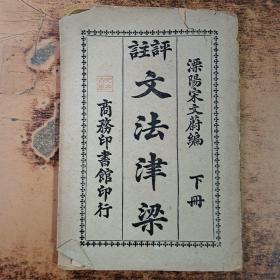 溧陽宋文蔚編 下冊
評註
文法津梁
商務印書館印行